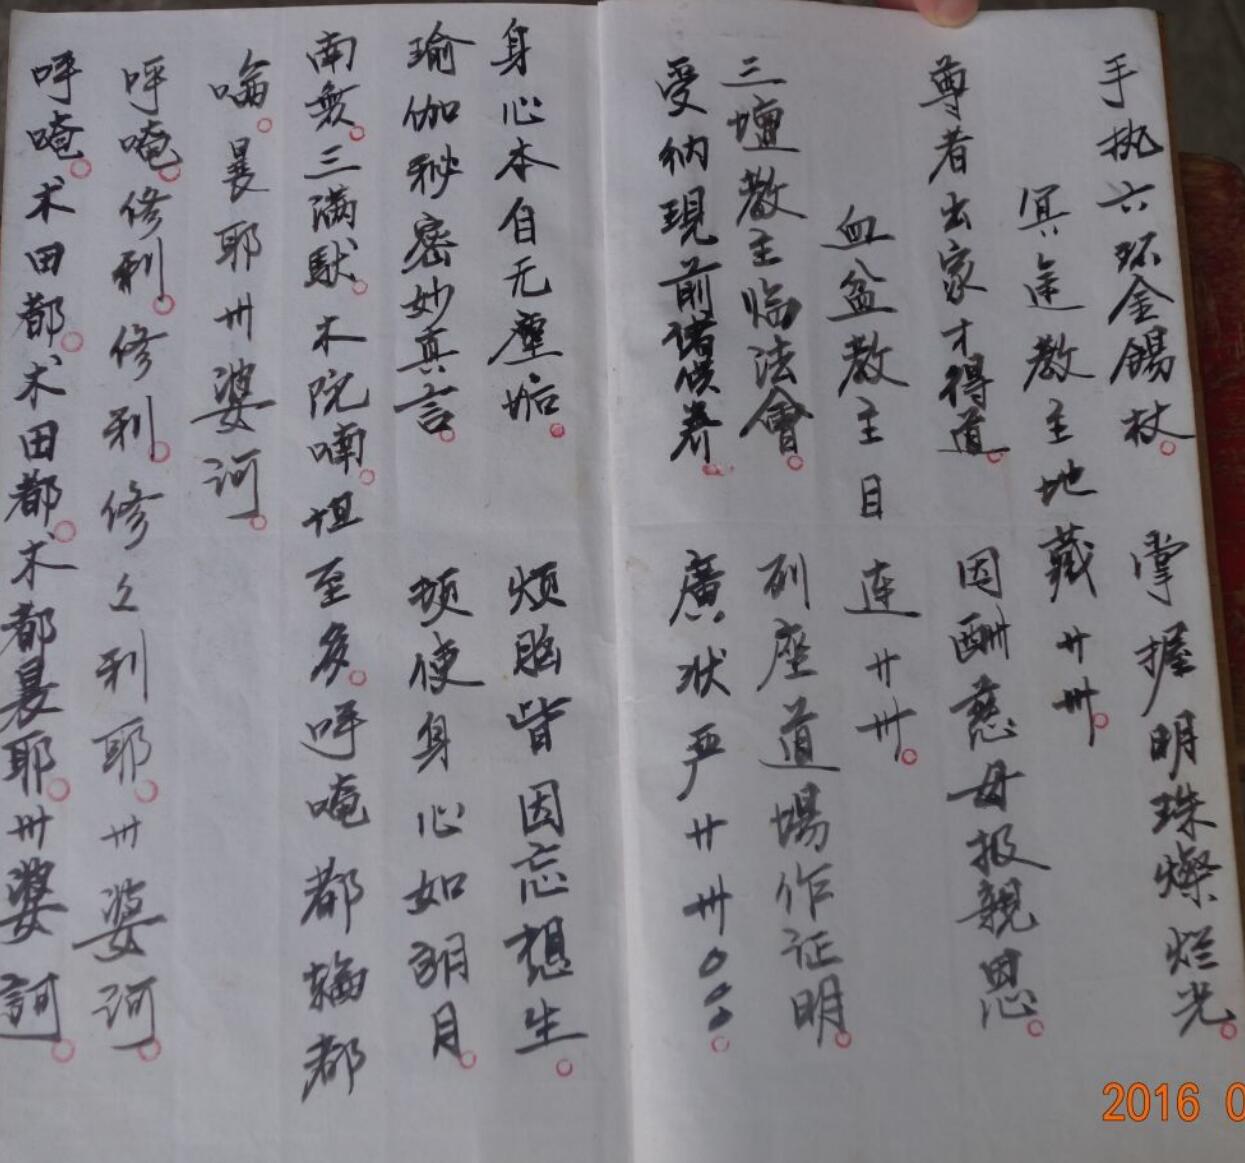 手执六环金锡杖。掌握明珠燦烂光。
冥途教主地藏卄卌。
尊者出家才得道。因酬慈母报親恩。
血盆教主目连卄卌。
三壇教主临法會。列座道場作证明。
受纳現前诸供养。廣状严卄卌
身心本自无塵垢。烦脑皆因忘想生。
瑜伽秘密妙真言。须使身心如朗月。
南無。三满馱。木院喃。怛至多。呼唵都輪都
噏。曩耶卅婆诃。
呼唵。修利。修利。修利耶。卅婆诃。
呼唵。术田都。术田都。术都曩耶。卅婆訶。
2016 0